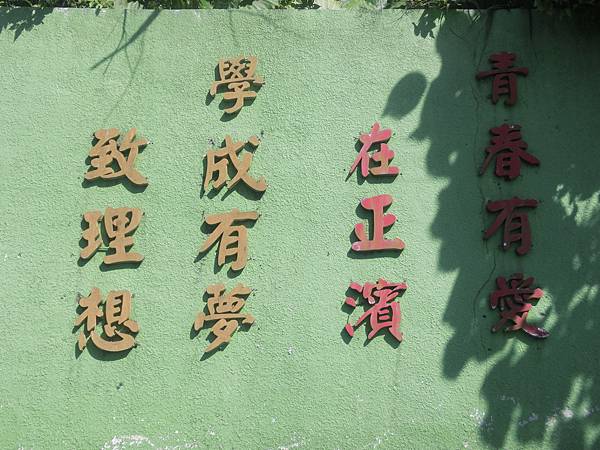 青春有愛
在正濱
學成有夢
致理想